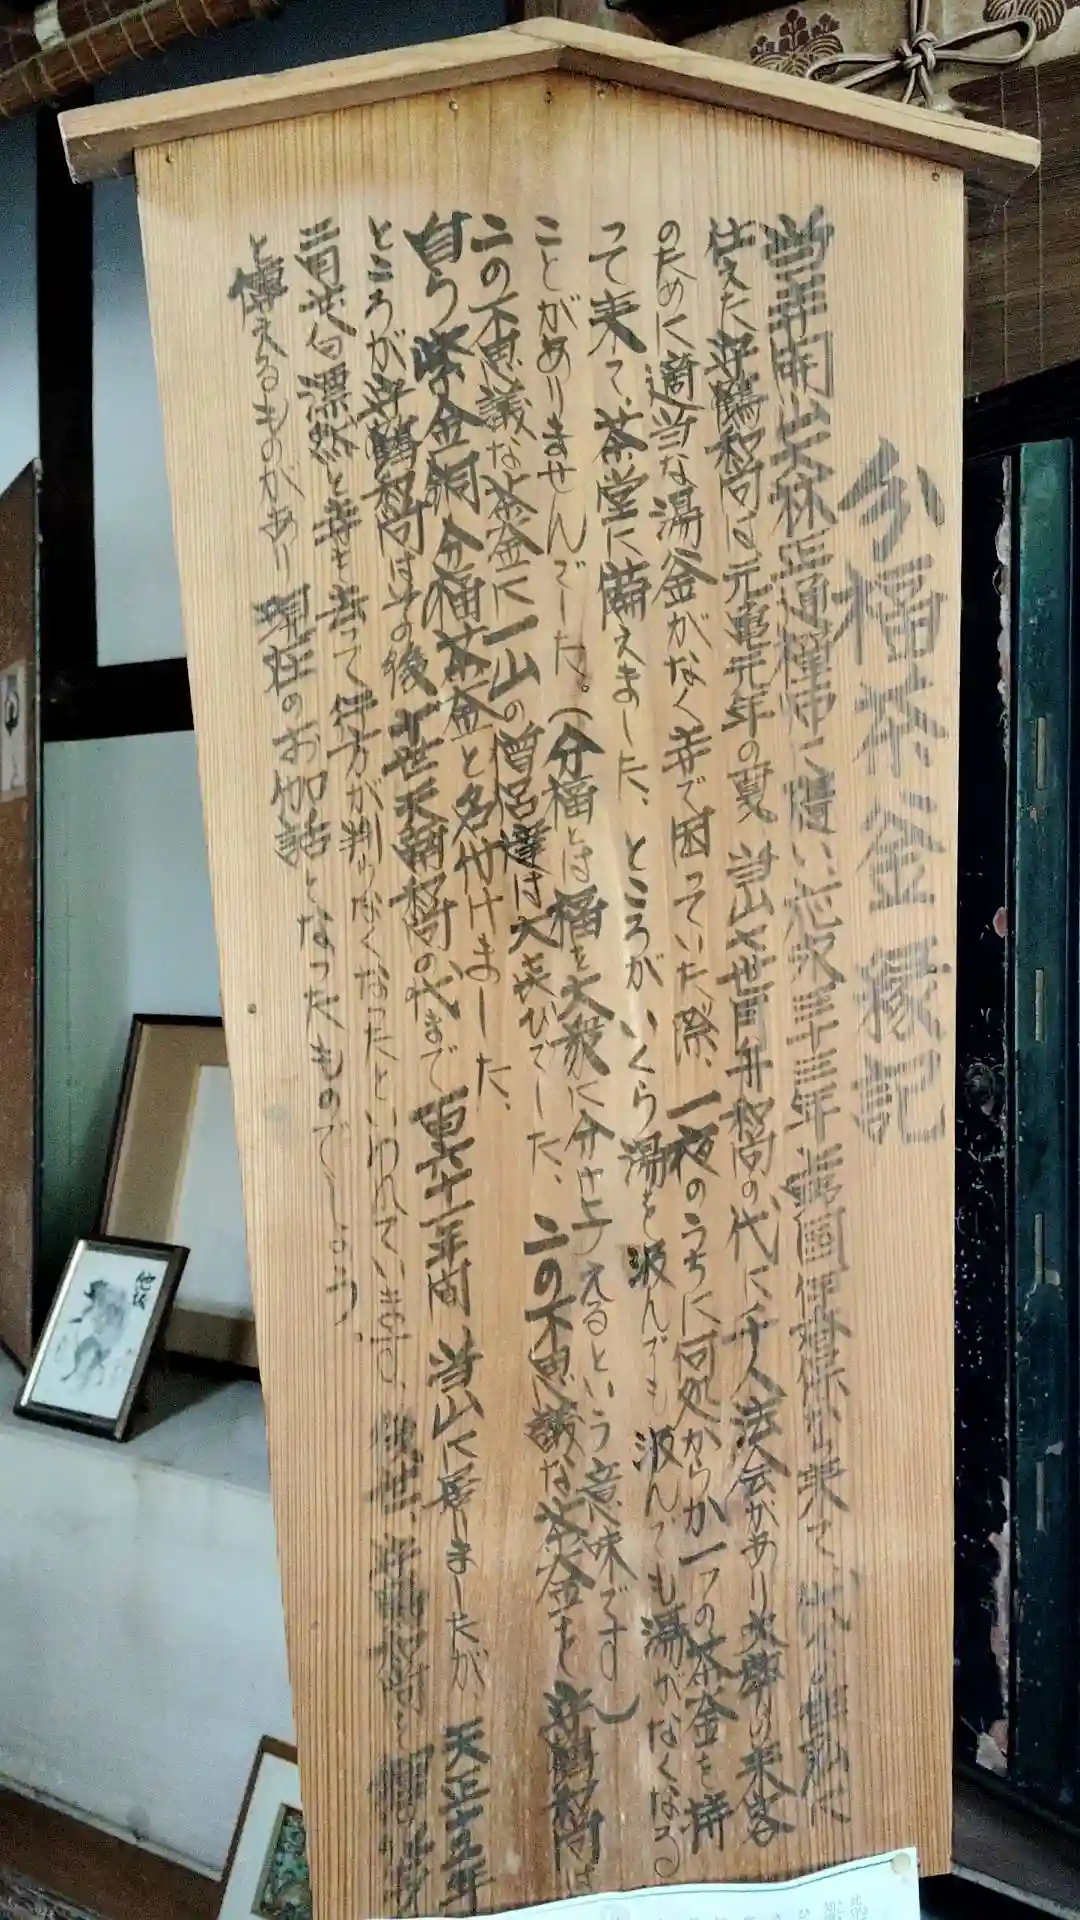 分福茶釜縁記
当寺開山大林正通禅師に従い応永三十三年 国伊 保から来て、
仕えた守鶴和尚は元亀元年の夏、当山七世月舟和尚の代に千人法会があり大勢の来客
のために適当な湯釜がなく寺で困っていた際、一夜のうちに何処からか一つの茶釜を持
って来て、茶堂に備えました、ところがいくら湯を汲んでも汲んでも湯がなくなる
ことがありませんでした。(分福とは福を大衆に分け与えるという意味です)
この不思議な茶釜に一山の僧呂達は大喜びでした、この不思議な茶釜を守鶴和尚は
自ら紫金銅分福茶釜と名付けました、
ところが守鶴和尚はその後十世天南和尚の代まで百六十一年間当山に居りましたが、天正十五年
二月廿八日漂然と寺を去って行方が判らなくなったといわれています、後世、守鶴和尚を狸の
と傳えるものがあり現在のお伽話となったものでしょう。